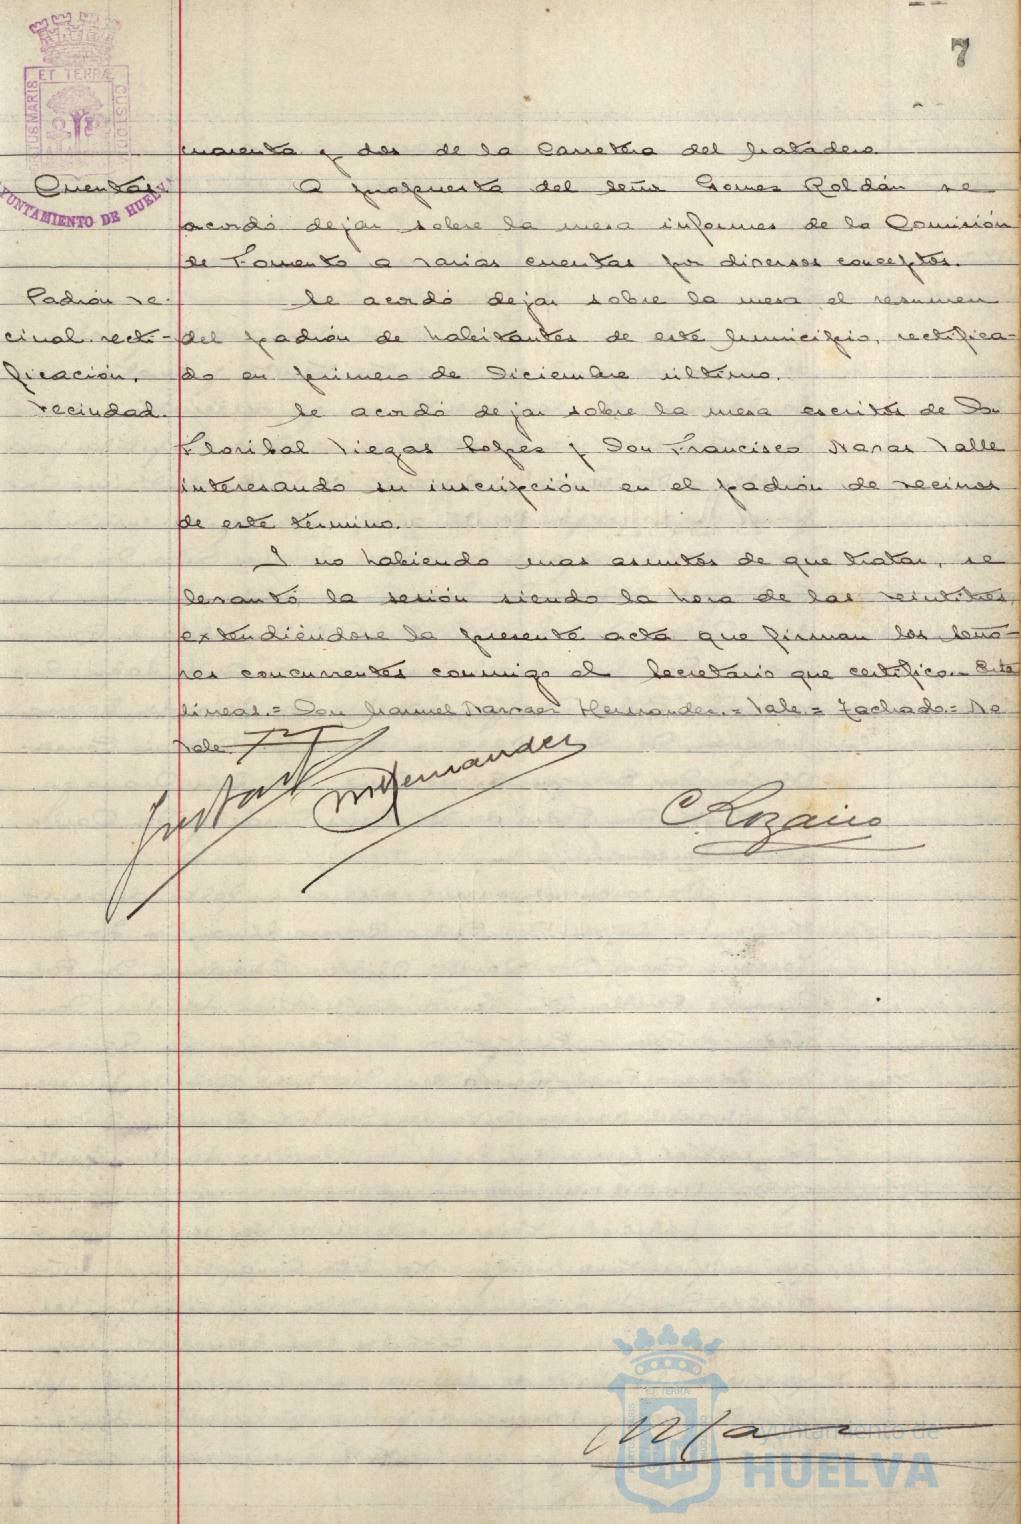 7
ET TERRÆ
PORTUS MARIS
CUSTODIA
AYUNTAMIENTO DE HUELVA
cuarenta y dos de la Carretera del Matadero.
Cuentas.
A propuesta del señor Gomez Roldán se
acordó dejar sobre la mesa informes de la Comisión
de Fomento a varias cuentas por diversos conceptos.
Padrón ve-
cinal recti-
ficación.
Se acordó dejar sobre la mesa el resumen
del padrón de habitantes de este Municipio, rectifica-
do en primero de Diciembre último.
vecindad.
Se acordó dejar sobre la mesa escritos de Don
Floribal Viegas Lopes y Don Francisco Navas Valle
interesando su inscripción en el padrón de vecinos
de este término.
Y no habiendo mas asuntos de que tratar, se
levantó la sesión siendo la hora de las veintitres,
extendiéndose la presente acta que firman los Seño-
res concurrentes conmigo el Secretario que certifico.= Entre
líneas.= Don Manuel Hernandez.= Vale.= Tachado.= No
vale.
MHernandez
C Rozairo
ET TERRA
Ayuntamiento de
HUELVA